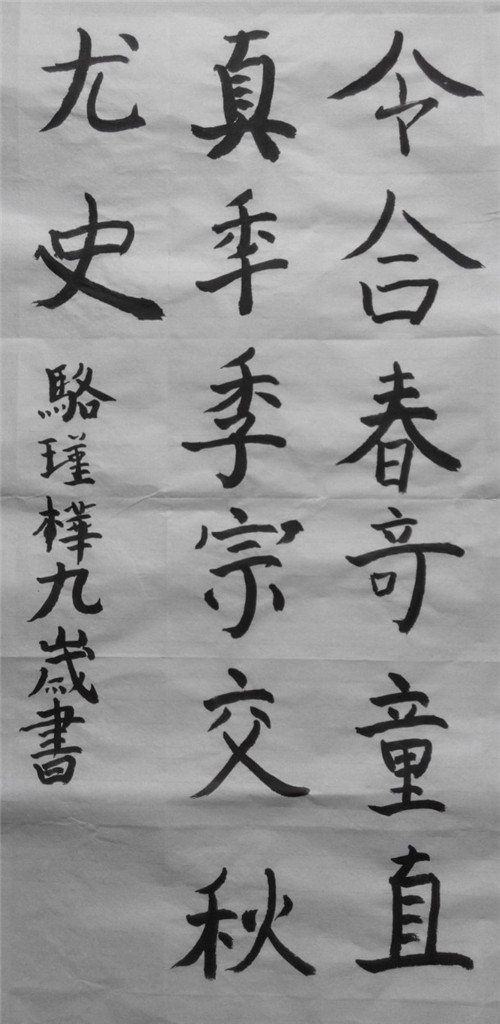 令合春奇童直
真秊季宗交秋
尤史
駱瑾樺九歲書